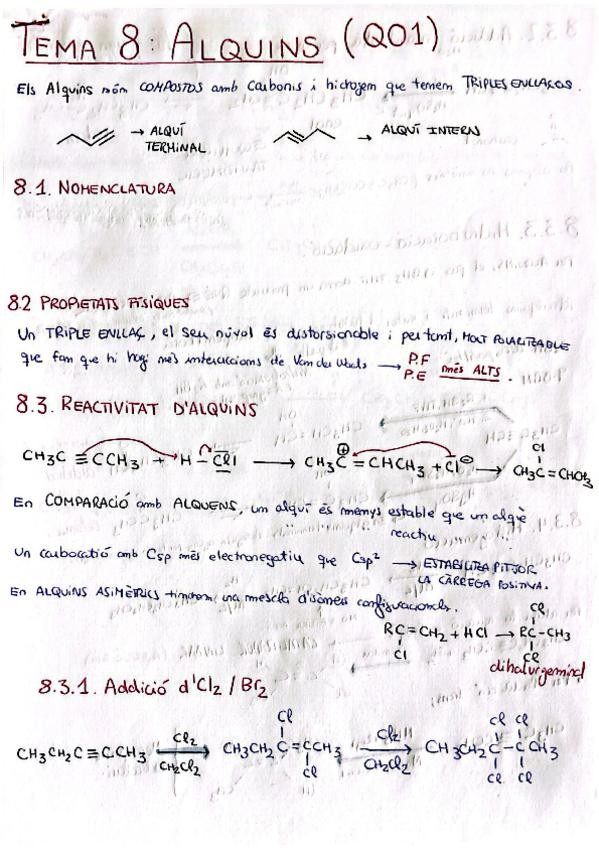 TEMA 8: ALQUINS (QO1)
Els Alquins són COMPOSTOS amb Carbonis i hidrogen que tenem TRIPLES ENLLAÇOS.
→ ALQUÍ TERMINAL
→ ALQUÍ INTERN
8.1. NOMENCLATURA
8.2 PROPIETATS FÍSIQUES
Un TRIPLE ENLLAÇ, el seu núvol és distorsionable i per tant, MOLT POLARITZABLE
que fan que hi hagi més interaccions de Van der Waals → P.F P.E més ALTS.
8.3. REACTIVITAT D'ALQUINS
CH3C≡CCH3 + H-Cl → CH3C⊕=CHCH3 + Cl⊖ → CH3C(Cl)=CHCH3
En COMPARACIÓ amb ALQUENS, un alquí és menys estable que un alquè
reactiu
Un carbocatió amb Csp més electronegatiu que Csp² → ESTABILITZA PITJOR
LA CÀRREGA POSITIVA.
En ALQUINS ASIMÈTRICS tindrem una mescla d'isòmers configuracionals.
RC(Cl)=CH2 + HCl → RC(Cl)(Cl)-CH3
dihalurgeminal
8.3.1. Addició d'Cl2 / Br2
CH3CH2C≡CCH3 →(Cl2, CH2Cl2) CH3CH2C(Cl)=C(Cl)CH3 →(Cl2, CH2Cl2) CH3CH2C(Cl)(Cl)-C(Cl)(Cl)CH3